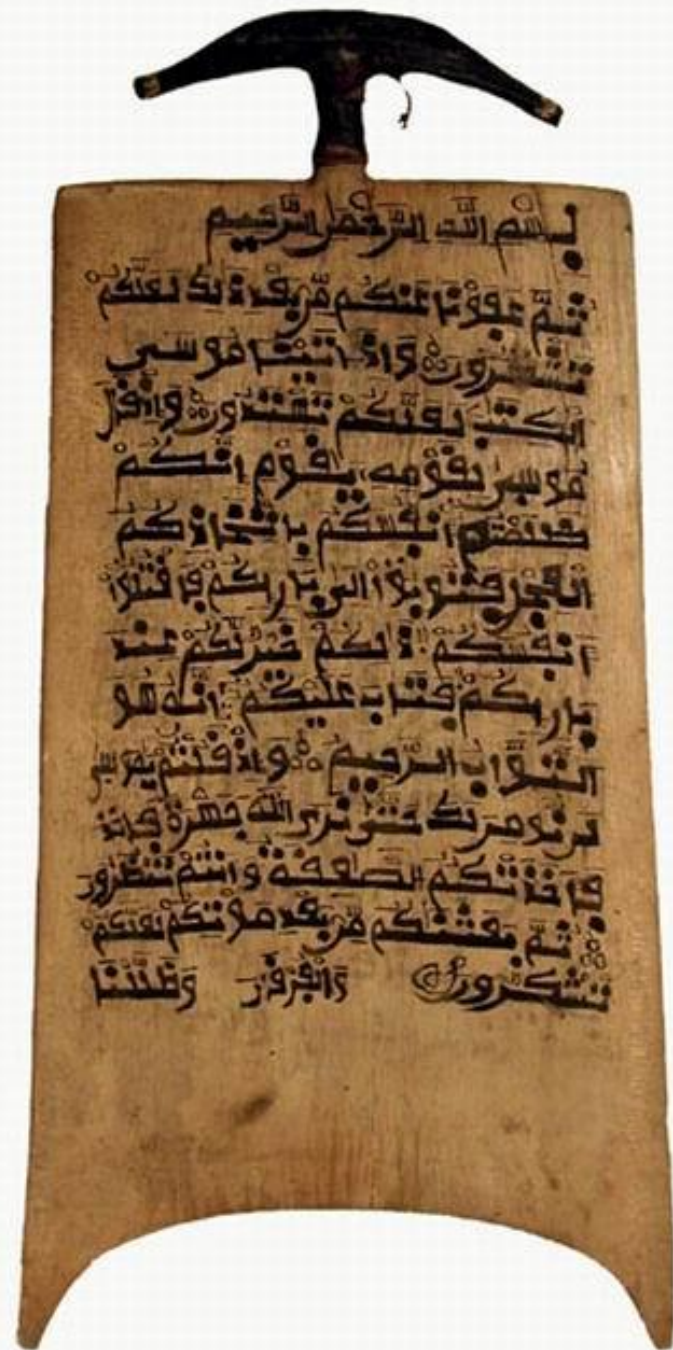 بسم الله الرحمن الرحيم
ثم عفونا عنكم من بعد ذلك لعلكم
تشكرون واذ اتينا موسى
الكتب لعلكم تهتدون واذ قال
موسى لقومه يقوم انكم
ظلمتم انفسكم باتخاذكم
العجل فتوبوا الى باريكم فاقتلوا
انفسكم ذلكم خير لكم عند
باريكم فتاب عليكم انه هو
التواب الرحيم واذ قلتم يموسى
لن نومن لك حتى نرى الله جهرة
فاخذتكم الصعقة وانتم تنظرون
ثم بعثنكم من بعد موتكم لعلكم
تشكرون وظللنا